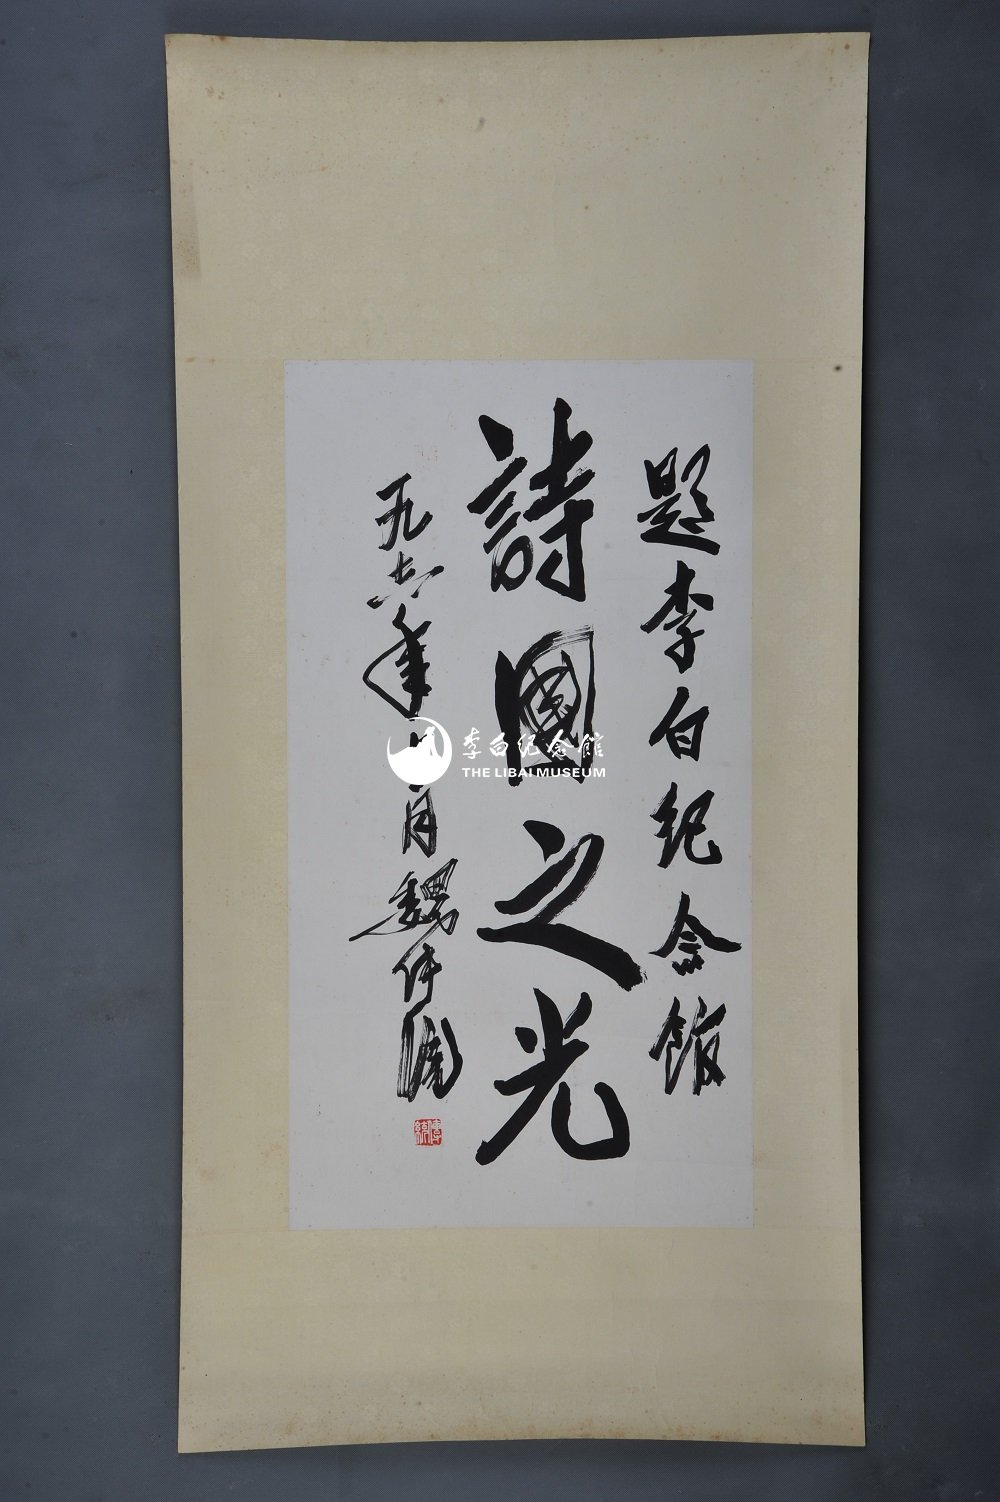 題李白纪念館
詩國之光
一九八六年十月魏传统
传統
李白纪念館
THE LIBAI MUSEUM